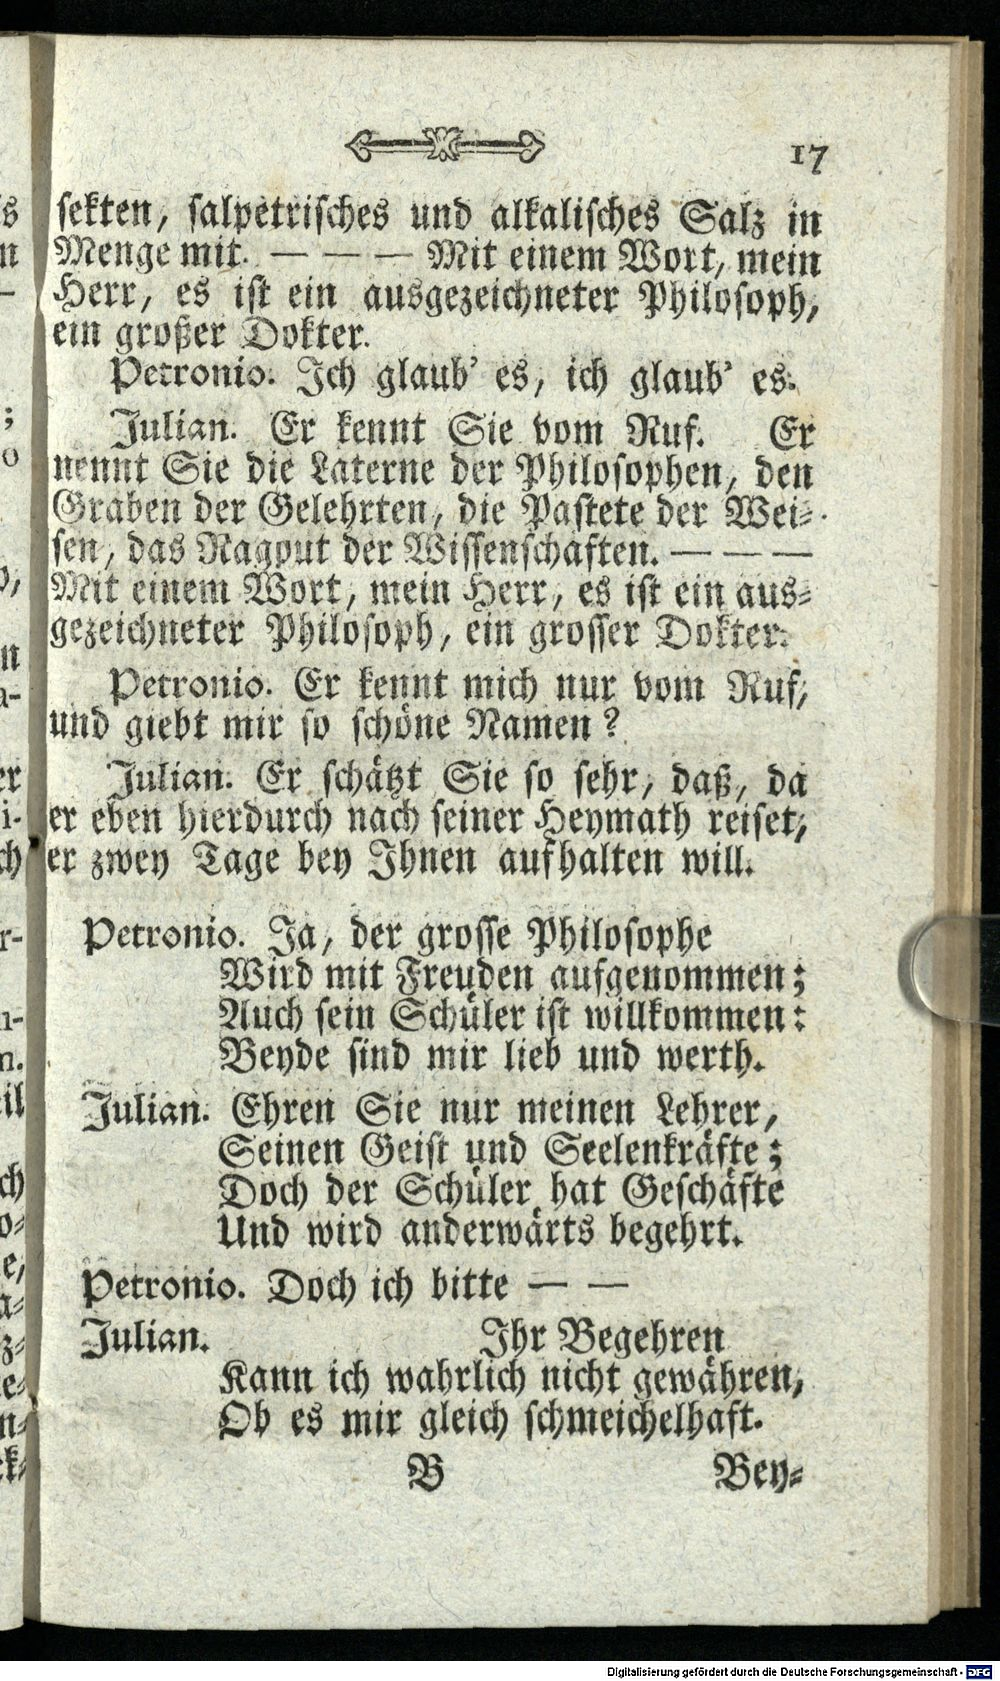 17
sekten, salpetrisches und alkalisches Salz in
Menge mit. — — — Mit einem Wort, mein
Herr, es ist ein ausgezeichneter Philosoph,
ein großer Dokter.
Petronio. Ich glaub' es, ich glaub' es.
Julian. Er kennt Sie vom Ruf. Er
nennt Sie die Laterne der Philosophen, den
Graben der Gelehrten, die Pastete der Wei-
sen, das Ragout der Wissenschaften. — — —
Mit einem Wort, mein Herr, es ist ein aus-
gezeichneter Philosoph, ein grosser Dokter.
Petronio. Er kennt mich nur vom Ruf,
und giebt mir so schöne Namen?
Julian. Er schätzt Sie so sehr, daß, da
er eben hierdurch nach seiner Heymath reiset,
er zwey Tage bey Ihnen aufhalten will.
Petronio. Ja, der grosse Philosophe
Wird mit Freuden aufgenommen;
Auch sein Schüler ist willkommen:
Beyde sind mir lieb und werth.
Julian. Ehren Sie nur meinen Lehrer,
Seinen Geist und Seelenkräfte;
Doch der Schüler hat Geschäfte
Und wird anderwärts begehrt.
Petronio. Doch ich bitte — —
Julian. Ihr Begehren
Kann ich wahrlich nicht gewähren,
Ob es mir gleich schmeichelhaft.
B Bey-
Digitalisierung gefördert durch die Deutsche Forschungsgemeinschaft - DFG